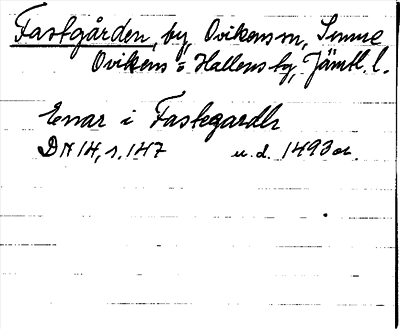 Fastgården, by, Ovikens sn, Sunne
Ovikens o Hallens tg, Jämtl. l.
Enar i Fastegardh
DN 14, s. 147 u.d. 1493 or.